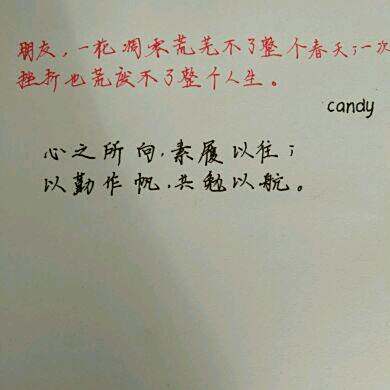 朋友，一花凋零荒芜不了整个春天；一次
挫折也荒废不了整个人生。
candy
心之所向，素履以往；
以勤作帆，共勉以航。